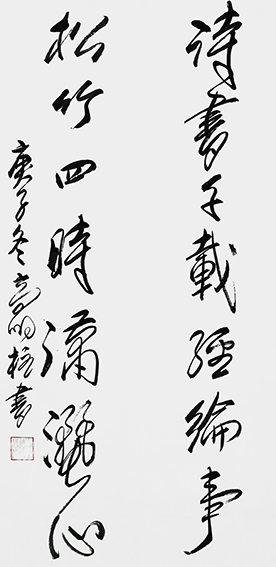 詩書千載經綸事
松竹四時瀟灑心
庚子冬高明柱書